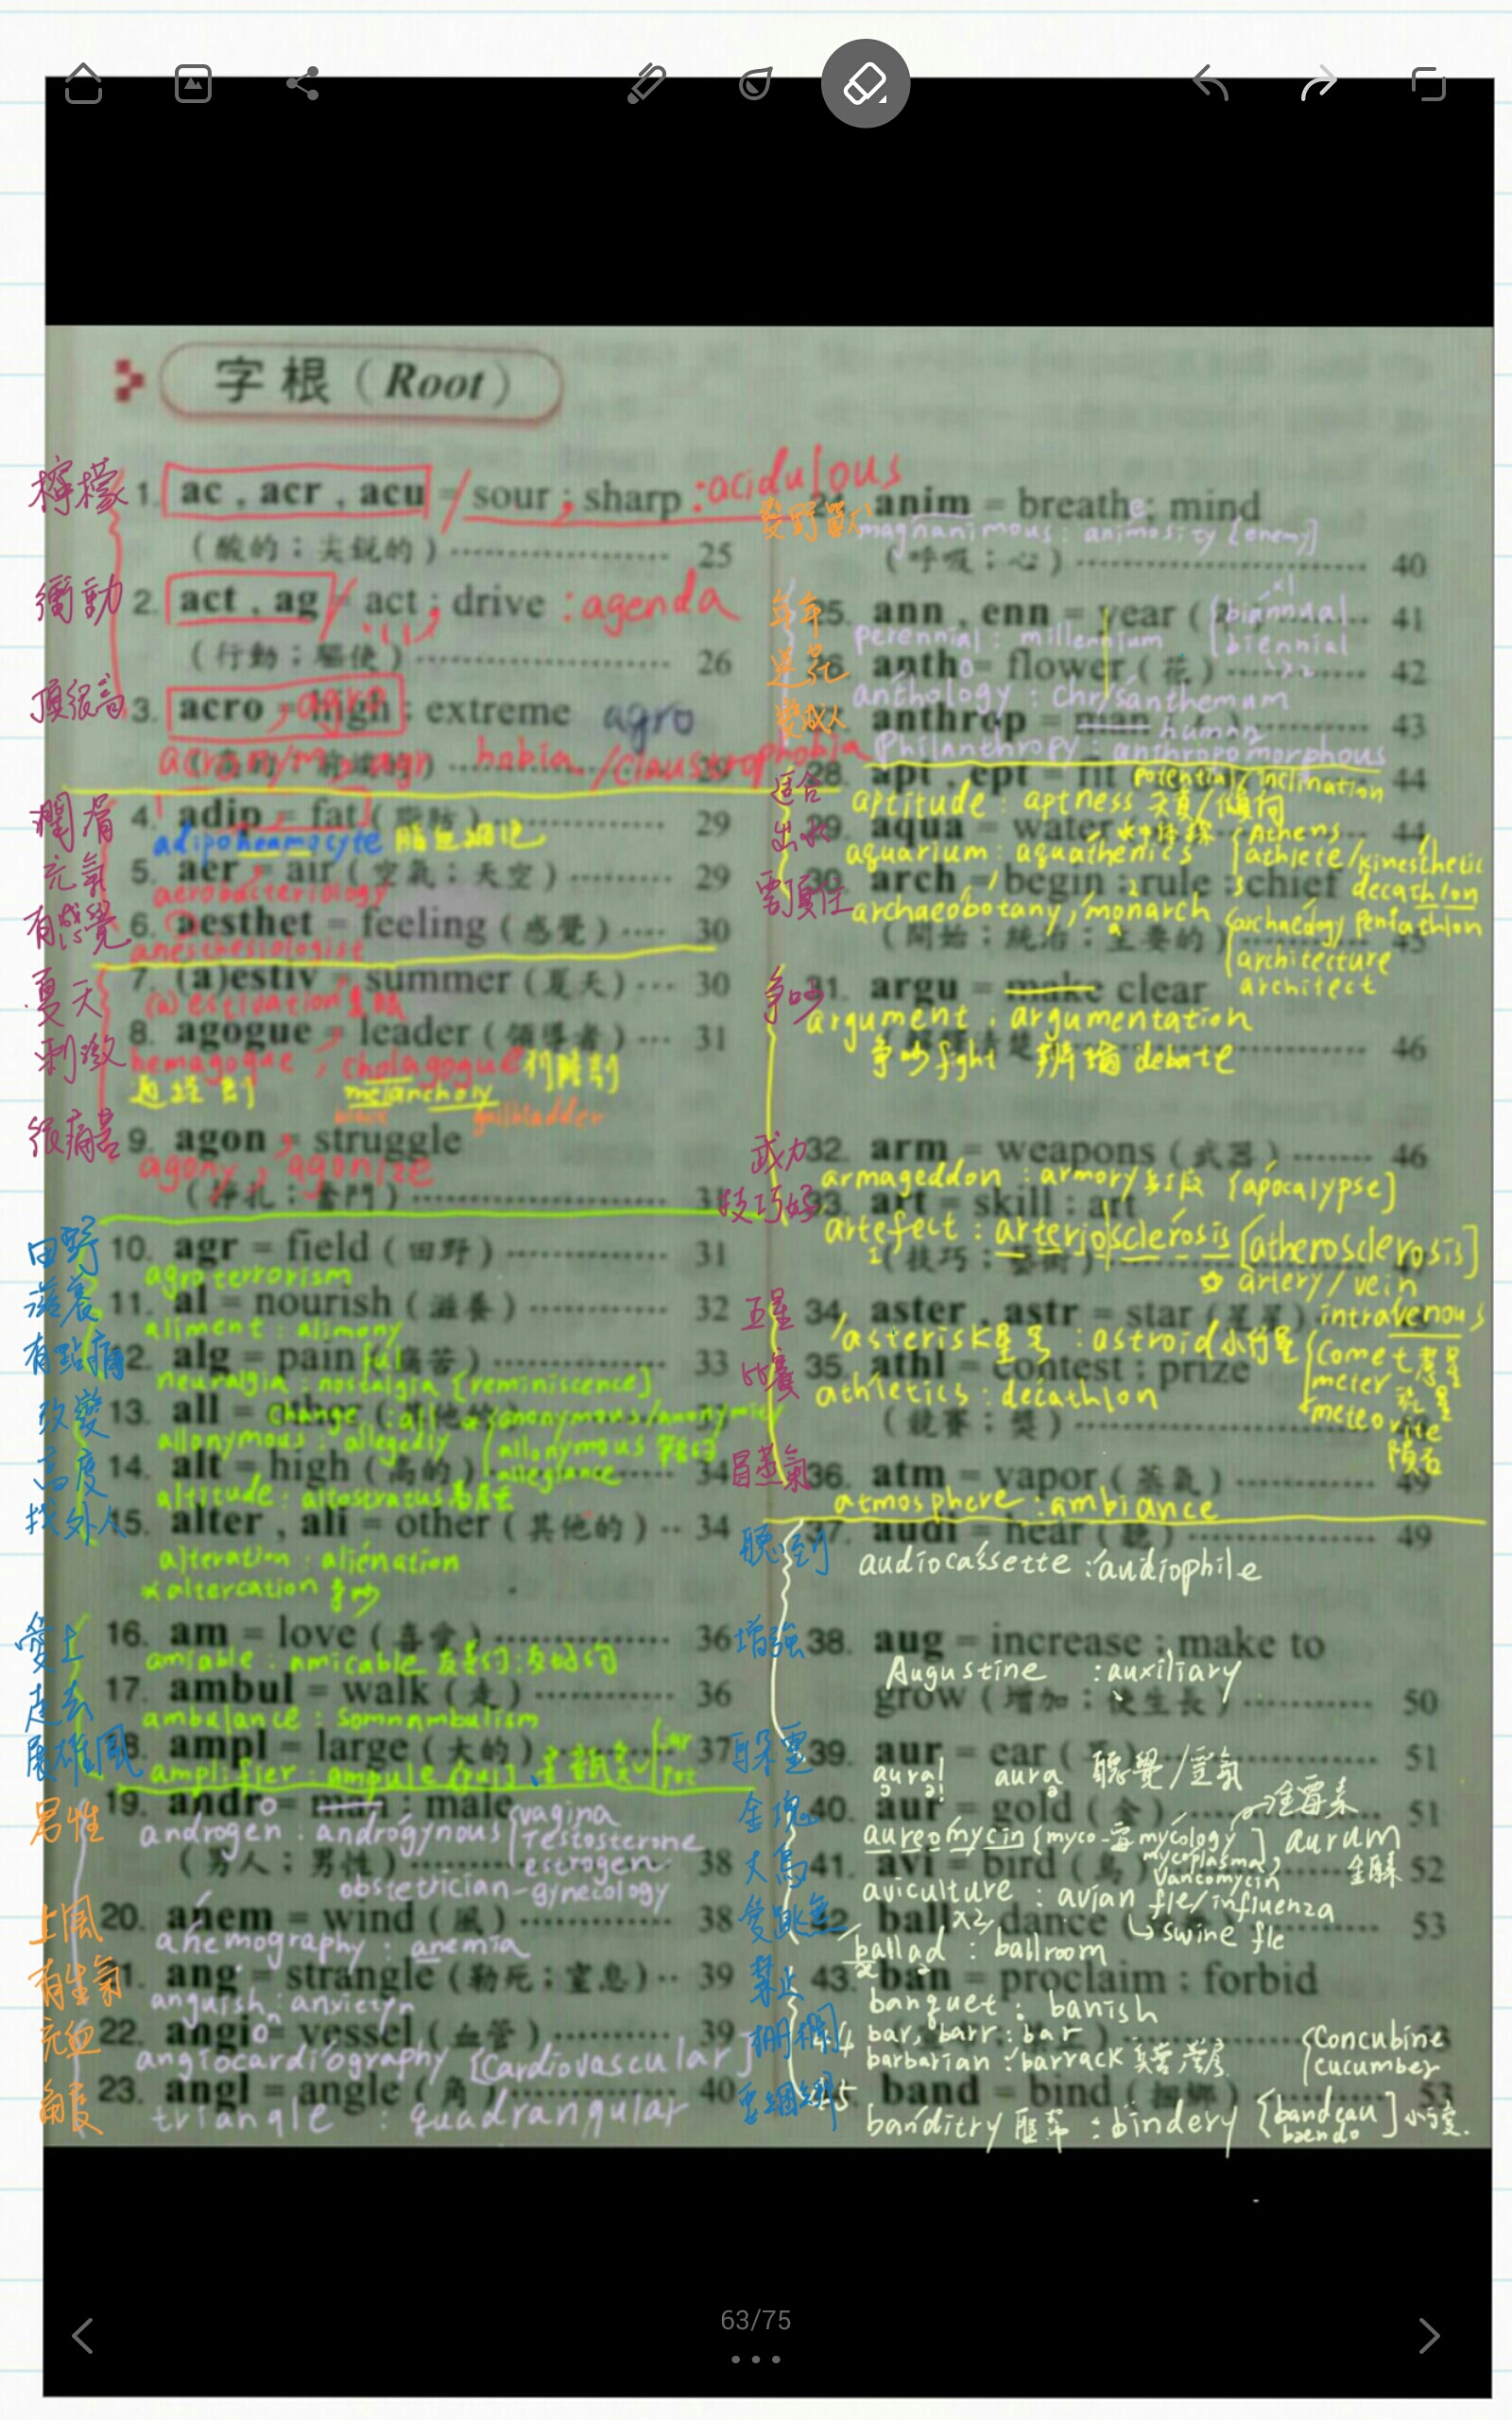 字根（Root）
檸檬 1. ac , acr , acu = sour ; sharp :acidulous
(酸的；尖銳的) 25
衝動 2. act , ag = act ; drive : agenda
(行動；驅使) 26
頂很高 3. acro , agro high ; extreme agro
/claustrophobia 29
潤滑 4. adip = fat (脂肪) 29
adipoheamocyte 脂血細胞
元氣 5. aer = air (空氣；天空) 29
aerobacteriology
有感覺 6. aesthet = feeling (感覺) 30
anesthesiologist
夏天 7. (a)estiv = summer (夏天) 30
(a)estivation 夏眠
刺激 8. agogue = leader (領導者) 31
hemagogue , cholagogue 利膽劑
通經劑 melancholy
black gallbladder
很痛苦 9. agon = struggle
agony , agonize
(掙扎；奮鬥) 31
田野 10. agr = field (田野) 31
agroterrorism
滋養 11. al = nourish (滋養) 32
aliment : alimony
有點痛 12. alg = pain ful (痛苦) 33
neuralgia : nostalgia [reminiscence]
改變 13. all = other change
allonymous : allegedly {anonymous/anonymity
allonymous
allegiance
高度 14. alt = high (高的) 34
altitude : altostratus 高層雲
找外人 15. alter , ali = other (其他的) 34
alteration : aliénation
altercation 爭吵
愛上 16. am = love (喜愛) 36
amiable : amicable
走去 17. ambul = walk (走) 36
ambulance : somnambulism
展雄風 18. ampl = large (大的) 37
amplifier : ampule
男性 19. andro = man ; male
androgen : andrógynous {vagina
Testosterone
estrogen
(男人；男性) 38
obstetrician-gynecology
上風 20. anem = wind (風) 38
anemography : anemia
有生氣 21. ang = strangle (勒死；窒息) 39
anguish : anxiety
充血 22. angio = vessel (血管) 39
angiocardiography [Cardiovascular]
角度 23. angl = angle (角) 40
triangle : quadrangular
24. anim = breathe; mind
magnanimous : animosity [enemy]
(呼吸；心) 40
年年 25. ann , enn = year 41
perennial : millennium {biannual
biennial
26. antho = flower (花) 42
anthology : chrysanthemum
變成人 27. anthrop = man human 43
Philanthropy : anthropomorphous
適合 28. apt , ept = fit potential/inclination 44
aptitude : aptness 天資/傾向
出水 29. aqua = water 44
aquarium : aquathenics {Athens
athlete/kinesthetic
30. arch = begin ; rule ; chief decathlon
archaeobotany , monarch {archaeology pentathlon
(開始；統治；主要的) 45
architecture
architect
爭吵 31. argu = make clear
argument : argumentation
46
爭吵 fight 辨論 debate
武力 32. arm = weapons (武器) 46
armageddon : armory [apocalypse]
技巧好 33. art = skill : art
artefect : arteriosclerosis [atherosclerosis]
(技巧；藝術)
artery/vein
五星 34. aster , astr = star (星星) intravenous
asterisk星号 : astroid小行星 {Comet彗星
比賽 35. athl = contest ; prize meter
athletics : decathlon meteorite
(競賽；獎) 隕石
冒蒸氣 36. atm = vapor (蒸氣) 49
atmosphere : ambiance
聽到 37. audi = hear (聽) 49
audiocassette : audiophile
增強 38. aug = increase ; make to
Augustine : auxiliary
grow (增加；使生長) 50
39. aur = ear 51
aural aura 聽覺/空氣
金塊 40. aur = gold (金) 51
金霉素
aureomycin {myco-霉 mycology] aurum
mycoplasma,
Vancomycin
41. avi = bird (鳥) 52
aviculture : avian fle/influenza
42. ball dance 53
swine fle
ballad : ballroom
禁止 43. ban = proclaim ; forbid
banquet : banish
柵欄 44 bar, barr : bar 53
barbarian : barrack {Concubine
cucumber
45 band = bind (捆綁) 53
banditry : bindery [bandeau]
63/75